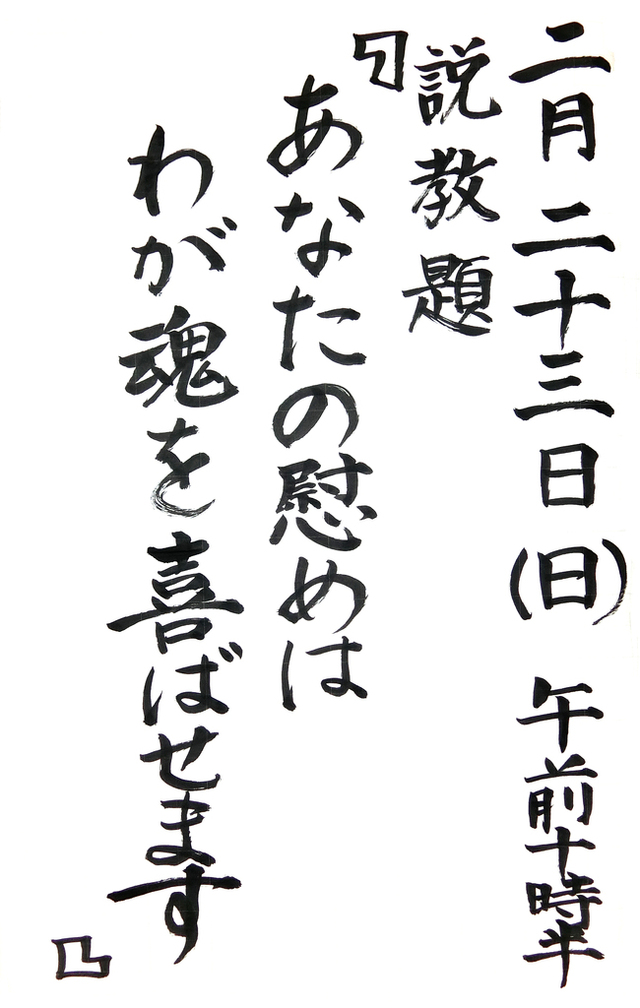 二月二十三日(日) 午前十時半
説教題
『あなたの慰めは
わが魂を喜ばせます』